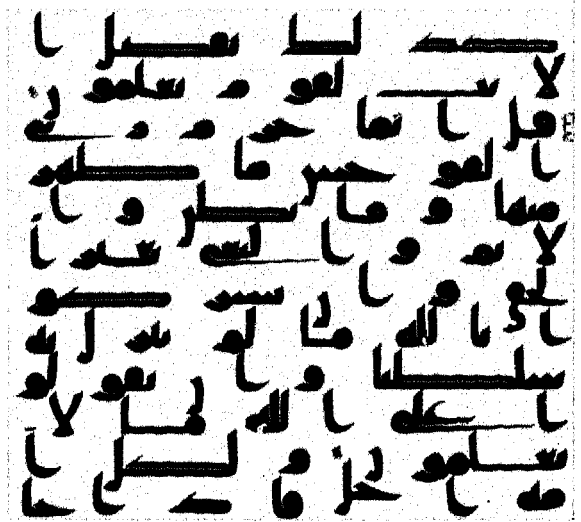 كذلك نفصل ا
لايت لقوم يعلمون
قل انما حرم ربي
الفوحش ما ظهر
منها وما بطن وا
لاثم والبغى بغير ا
لحق وان تشركو
ا بالله ما لم ينزل به
سلطنا وان تقولو
ا على الله ما لا
تعلمون ولكل ا
مة اجل فاذا جا